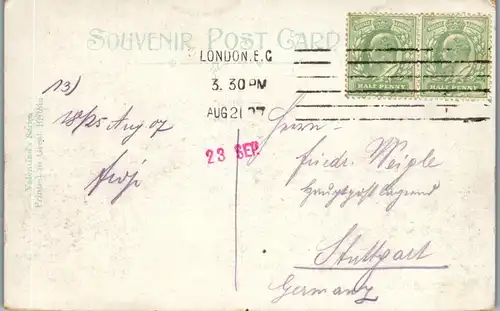 SOUVENIR POST CARD
LONDON. E.C
3. 30 PM
AUG 21 07
HALF PENNY
HALF PENNY
13)
Aug 07
23 SEP.
Herrn
Friedr. Weigle
Stuttgart
Germany
Valentine's Series